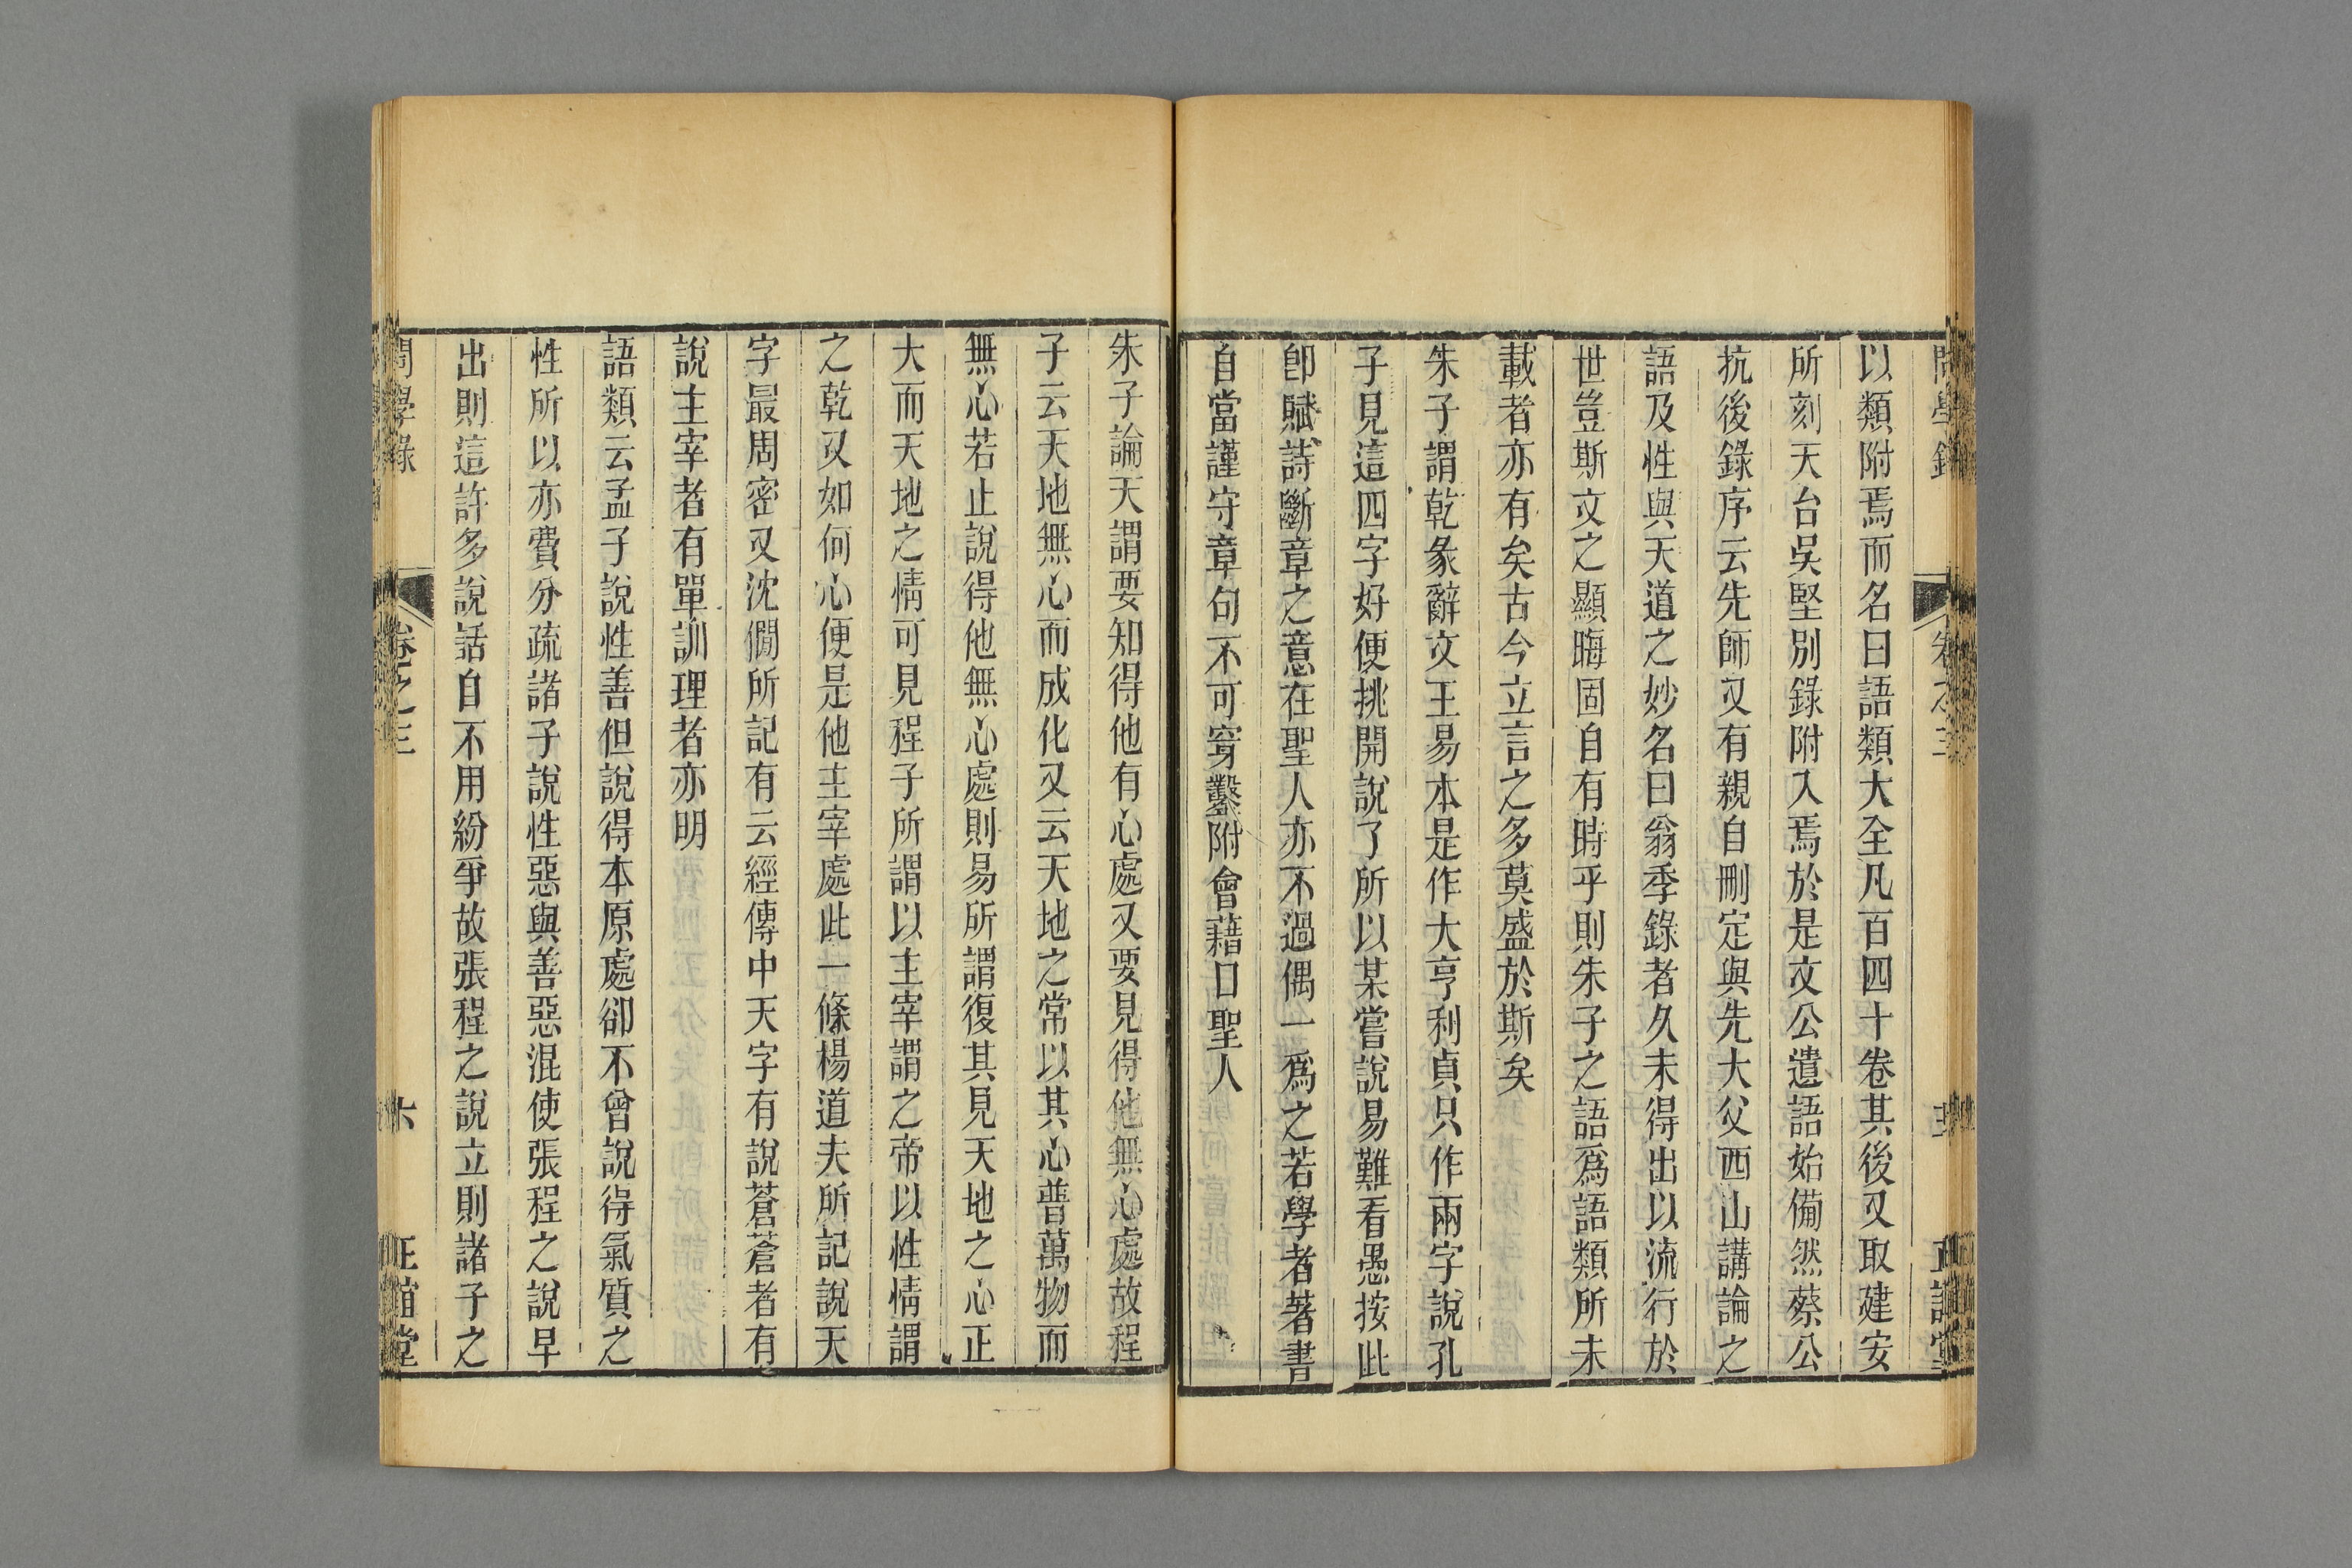 問學錄 卷之三 正誼堂
以類附焉而名曰語類大全凡百四十卷其後又取建安
所刻天台吳堅別錄附入焉於是文公遺語始備然蔡公
抗後錄序云先師又有親自刪定與先大父西山講論之
語及性與天道之妙名曰翁季錄者久未得出以流行於
世豈斯文之顯晦固自有時乎則朱子之語爲語類所未
載者亦有矣古今立言之多莫盛於斯矣
朱子謂乾彖辭文王易本是作大亨利貞只作兩字說孔
子見這四字好便挑開說了所以某嘗說易難看愚按此
卽賦詩斷章之意在聖人亦不過偶一爲之若學者著書
自當謹守章句不可穿鑿附會藉口聖人
朱子論天謂要知得他有心處又要見得他無心處故程
子云天地無心而成化又云天地之常以其心普萬物而
無心若止說得他無心處則易所謂復其見天地之心正
大而天地之情可見程子所謂以主宰謂之帝以性情謂
之乾又如何心便是他主宰處此一條楊道夫所記說天
字最周密又沈僩所記有云經傳中天字有說蒼蒼者有
說主宰者有單訓理者亦明
語類云孟子說性善但說得本原處卻不曾說得氣質之
性所以亦費分疏諸子說性惡與善惡混使張程之說早
出則這許多說話自不用紛爭故張程之說立則諸子之
問學錄 卷之三 六 正誼堂